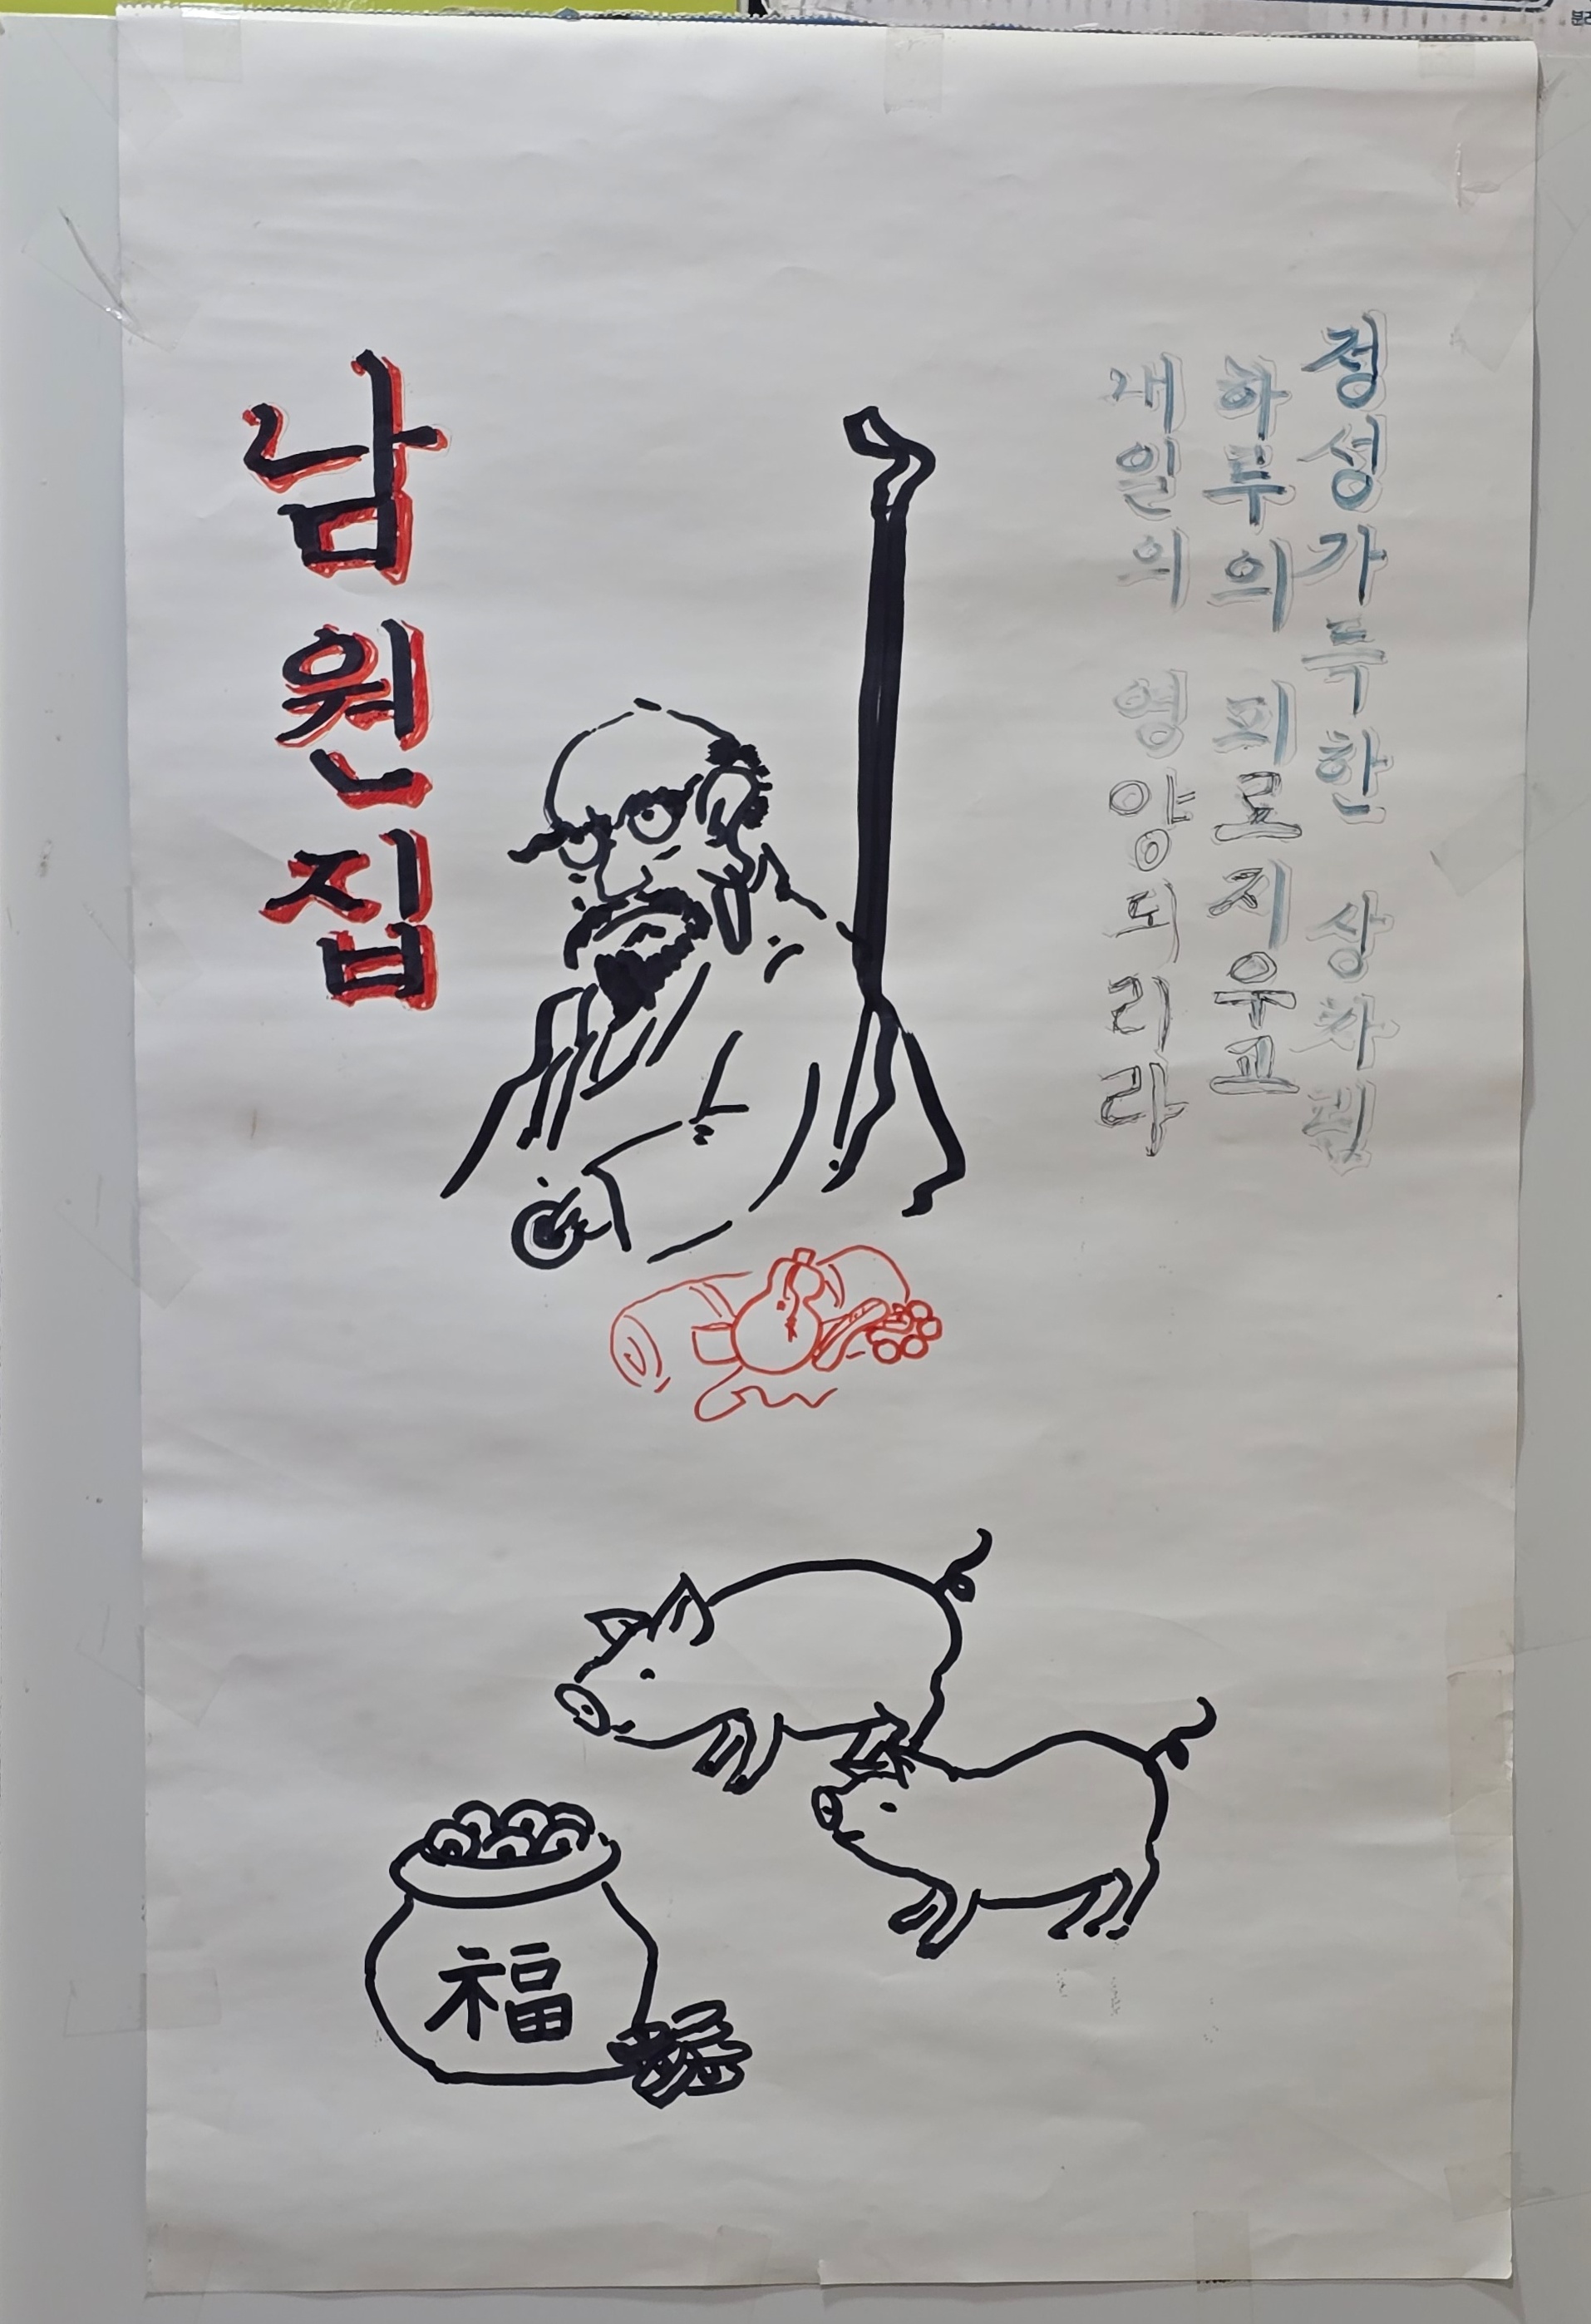 정성가득한 상차림
하루의 피로지우고
내일의 영양되리라
남원집
福